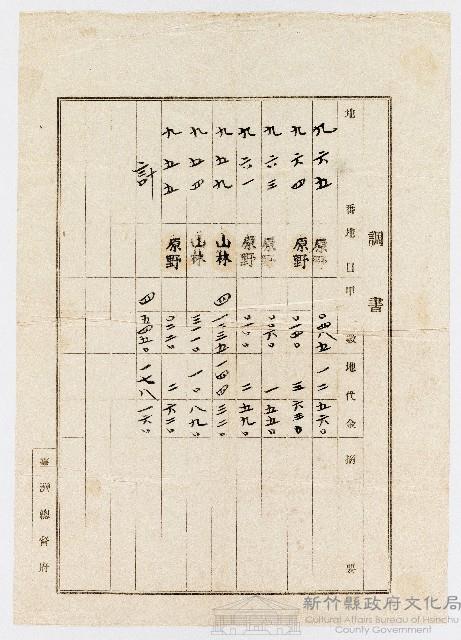 調書
地番 地目 甲數 地代金 摘要
九六五 原野 〇四八五 一二五六〇
九六四 原野 〇一四〇 三六三〇
九六三 原野 〇〇六〇 一五五〇
九六一 原野 〇一〇〇 二五九〇
九五九 山林 四 一二三五 一四四三二〇
九五四 山林 三一一〇 一〇八九〇
九五五 原野 〇二二〇 二六二〇
計 四 五四五〇 一七八一六〇
臺灣總督府
新竹縣政府文化局
Cultural Affairs Bureau of Hsinchu
County Government